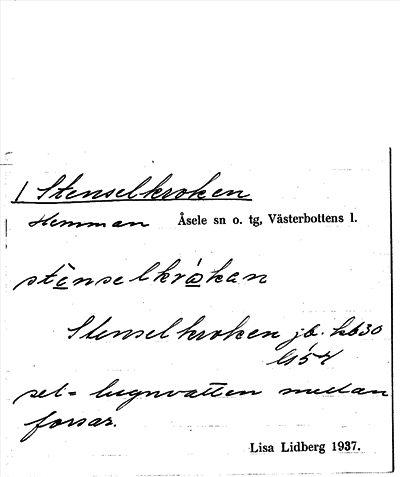 Stenselkroken
Hemman Åsele sn o. tg, Västerbottens l.
stènselkrọ́kan
Stenselkroken jb. kb30
sel = lugnvatten mellan
forsar.
Lisa Lidberg 1937.